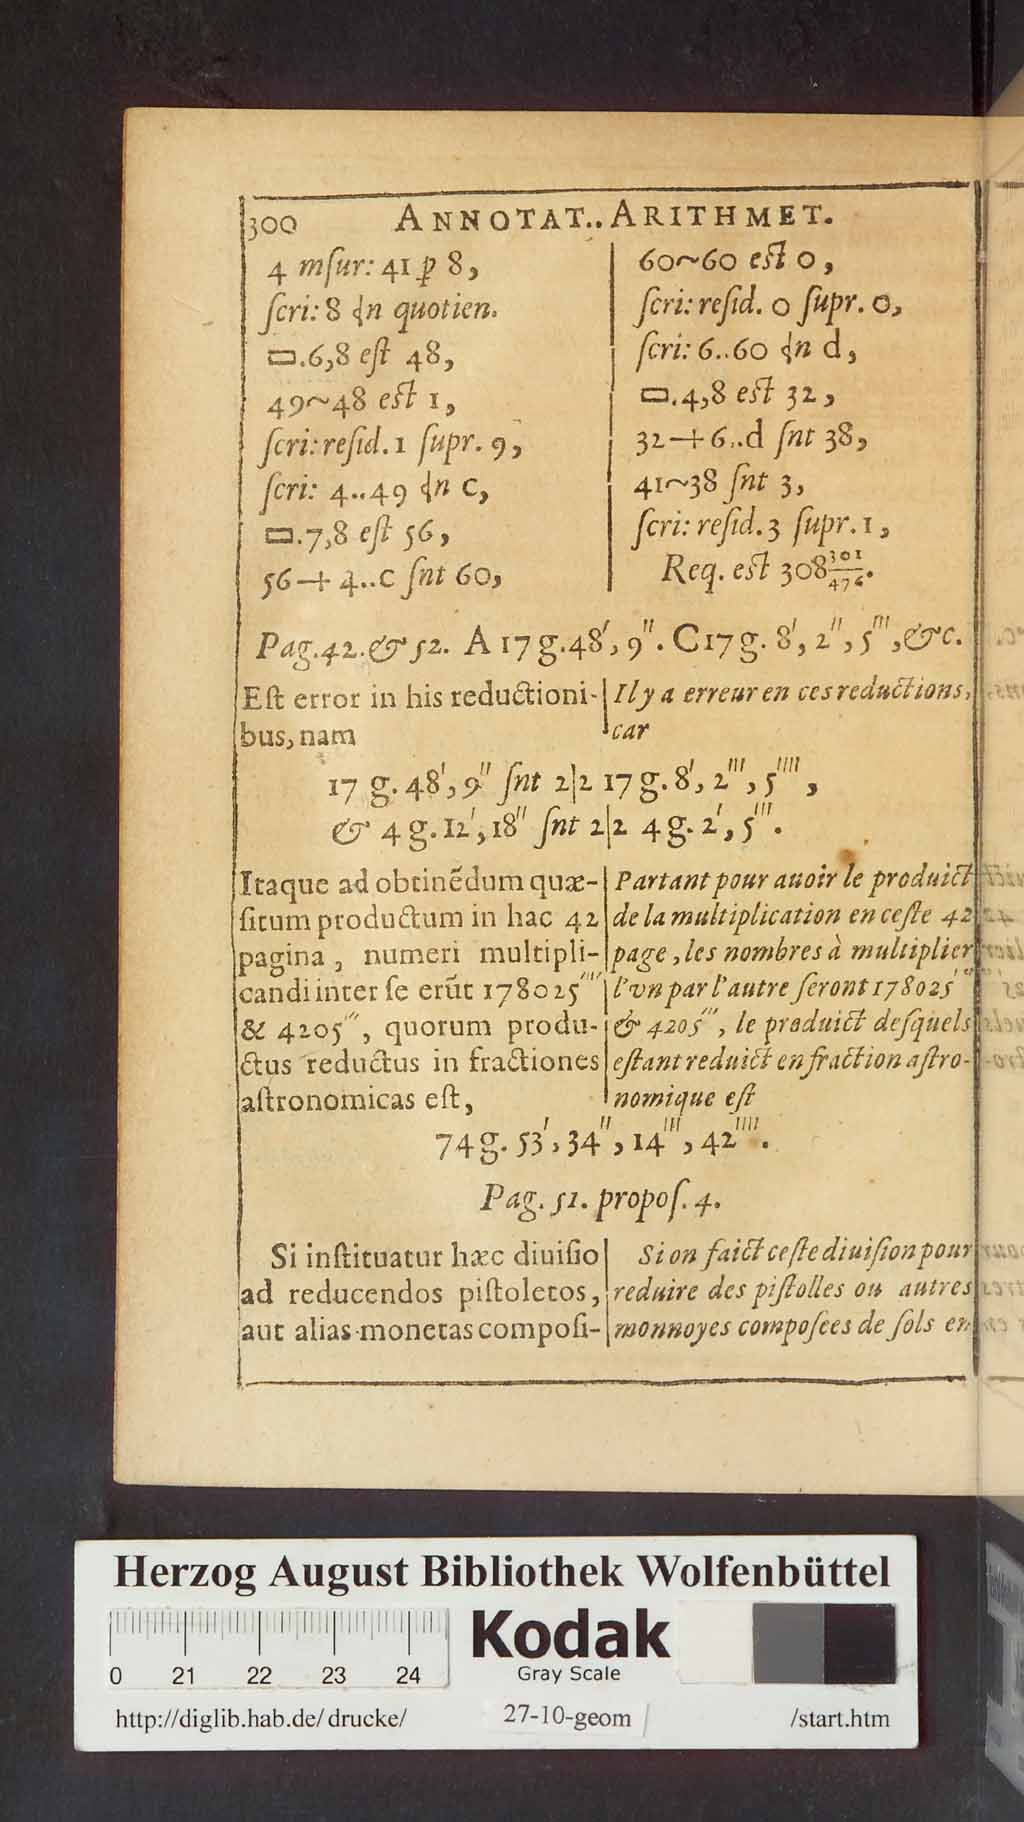 300 ANNOTAT.. ARITHMET.
4 mſur: 41 ꝑ 8,
ſcri: 8 n quotien.
▭.6,8 eſt 48,
49~48 eſt 1,
ſcri: reſid. 1 ſupr. 9,
ſcri: 4..49 n c,
▭.7,8 eſt 56,
56+4..c ſnt 60,
60~60 eſt 0,
ſcri: reſid. 0 ſupr. 0,
ſcri: 6..60 n d,
▭.4,8 eſt 32,
32+6..d ſnt 38,
41~38 ſnt 3,
ſcri: reſid. 3 ſupr. 1,
Req. eſt 308 301/476.
Pag. 42. & 52. A 17 g. 48′, 9″. C 17 g. 8′, 2″, 5‴, &c.
Eſt error in his reductioni-
bus, nam
Il y a erreur en ces reductions,
car
17 g. 48′, 9″ ſnt 2|2 17 g. 8′, 2‴, 5⁗,
& 4 g. 12′, 18″ ſnt 2|2 4 g. 2′, 5‴.
Itaque ad obtinẽdum quæ-
ſitum productum in hac 42
pagina, numeri multipli-
candi inter ſe erũt 178025⁗
& 4205‴, quorum produ-
ctus reductus in fractiones
aſtronomicas eſt,
Partant pour auoir le produict
de la multiplication en ceſte 42
page, les nombres à multiplier
l'vn par l'autre ſeront 178025⁗
& 4205‴, le produict deſquels
eſtant reduict en fraction aſtro-
nomique eſt
74 g. 53′, 34″, 14‴, 42⁗.
Pag. 51. propoſ. 4.
Si inſtituatur hæc diuiſio
ad reducendos piſtoletos,
aut alias monetas compoſi-
Si on faict ceſte diuiſion pour
reduire des piſtolles ou autres
monnoyes compoſees de ſols en
Herzog August Bibliothek Wolfenbüttel
0 21 22 23 24
Kodak
Gray Scale
http://diglib.hab.de/drucke/ 27-10-geom /start.htm